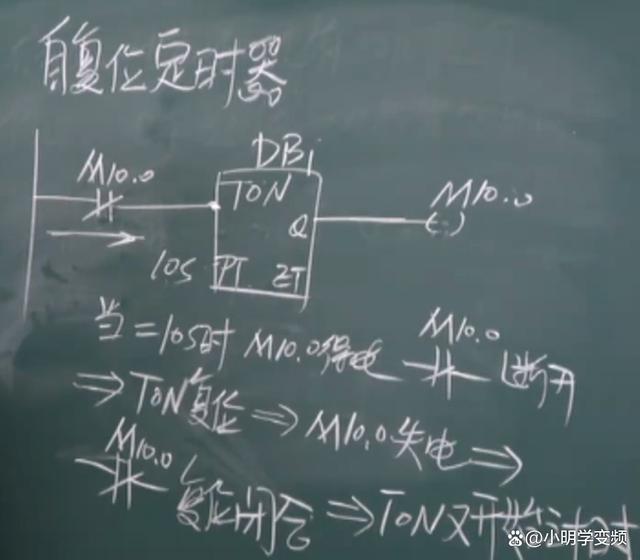 自复位定时器
DB1
M10.0
TON
M10.0
Q
10S PT ET
当=10S时 M10.0得电 M10.0 断开
⇒TON复位⇒M10.0失电⇒
M10.0 复位闭合⇒TON又开始计时
@小明学变频